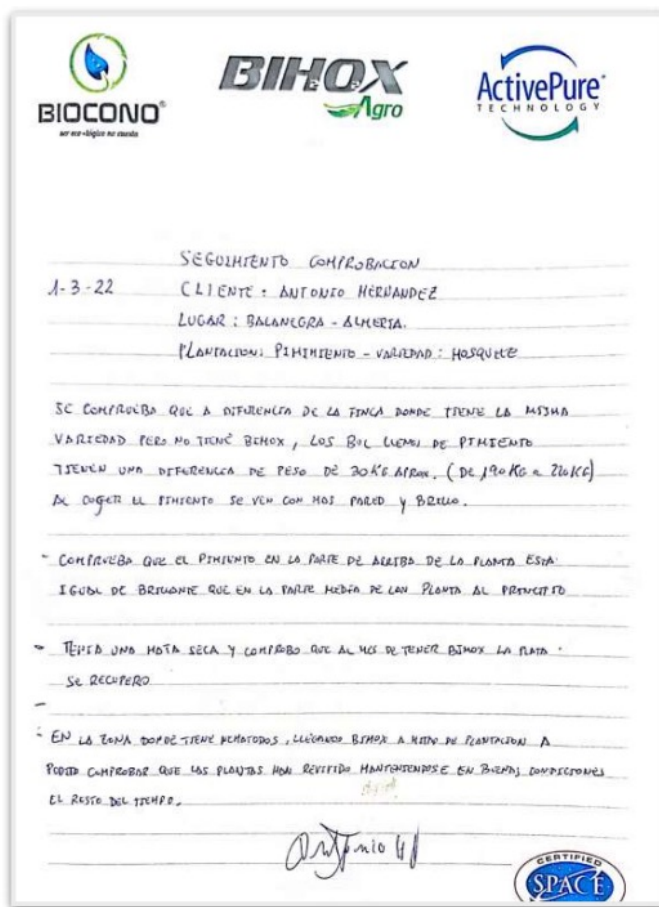 BIOCONO®
ser eco-lógico no cuesta
BIHOX
Agro
ActivePure®
TECHNOLOGY
SEGUIMIENTO COMPROBACION
1-3-22 CLIENTE: ANTONIO HERNANDEZ
LUGAR: BALANEGRA - ALMERIA.
PLANTACION: PIMIMIENTO - VARIEDAD: MOSQUETE
SE COMPRUEBA QUE A DIFERENCIA DE LA FINCA DONDE TIENE LA MISMA
VARIEDAD PERO NO TIENE BIHOX, LOS BOL LLENOS DE PIMIENTO
TIENEN UNA DIFERENCIA DE PESO DE 30 KG APROX. (DE 190 KG a 220 KG)
AL COGER EL PIMIENTO SE VEN CON MAS PARED Y BRILLO.
- COMPRUEBA QUE EL PIMIENTO EN LA PARTE DE ARRIBA DE LA PLANTA ESTA
IGUAL DE BRILLANTE QUE EN LA PARTE MEDIA DE LAN PLANTA AL PRINCIPIO
- TENIA UNA MATA SECA Y COMPROBO QUE AL MES DE TENER BIHOX LA PLATA
SE RECUPERO
-
- EN LA ZONA DONDE TIENE NEMATODOS, LLEGANDO BIHOX A MITAD DE PLANTACION A
PODIDO COMPROBAR QUE LAS PLANTAS HAN REVIVIDO MANTENIENDOSE EN BUENAS CONDICIONES
EL RESTO DEL TIEMPO.
Antonio H
CERTIFIED
SPACE